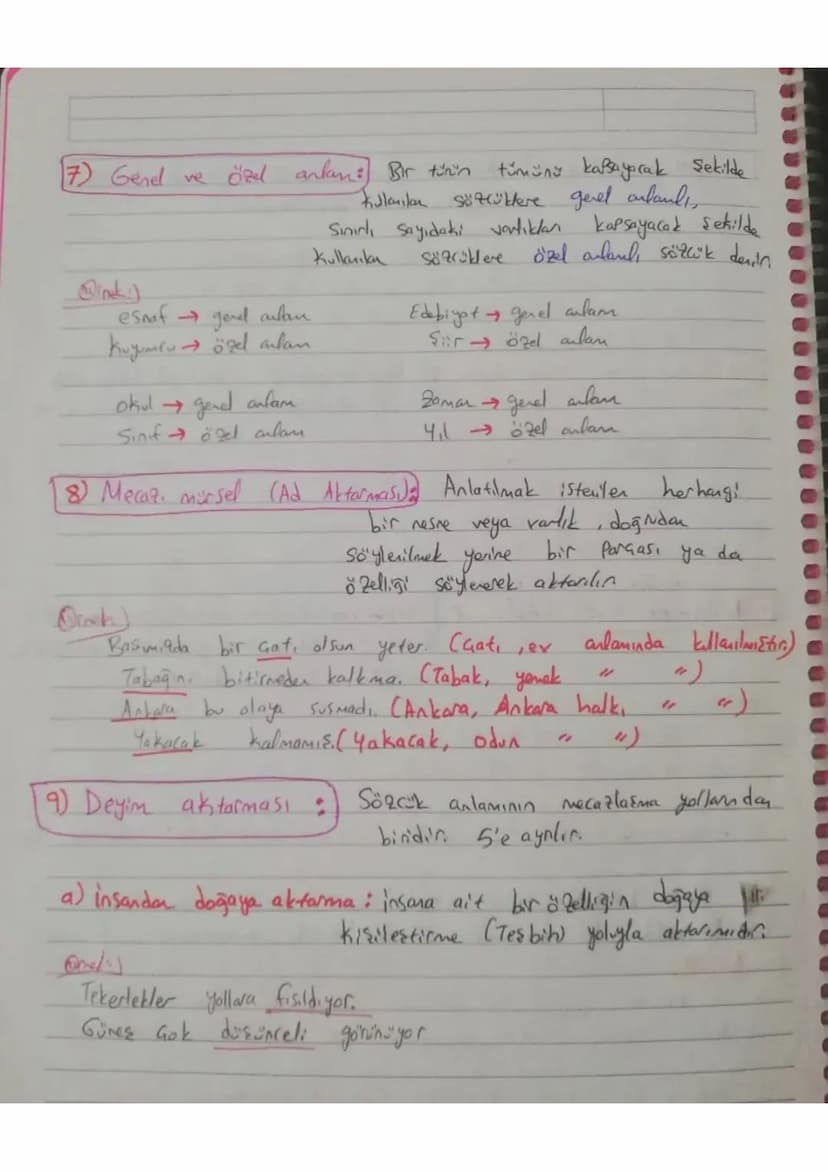 7) Genel ve özel anlam: Bir türün tümünü kapsayacak şekilde
kullanılan sözcüklere genel anlamlı,
sınırlı sayıdaki varlıkları kapsayacak şekilde
kullanılan sözcüklere özel anlamlı sözcük denir
Örnek:)
esnaf → genel anlam Edebiyat → genel anlam
kuyumcu → özel anlam Şiir → özel anlam
okul → genel anlam Zaman → genel anlam
Sınıf → özel anlam Yıl → özel anlam
8) Mecaz-ı mürsel (Ad Aktarması): Anlatılmak istenilen herhangi
bir nesne veya varlık, doğrudan
söylenilmek yerine bir parçası ya da
özelliği söylenerek aktarılır
Örnek:)
Başımızda bir çatı olsun yeter. (Çatı, ev anlamında kullanılmıştır)
Tabağını bitirmeden kalkma. (Tabak, yemek " ")
Ankara bu olaya susmadı. (Ankara, Ankara halkı " ")
Yakacak kalmamış. (Yakacak, odun " ")
9) Deyim aktarması : Sözcük anlamının mecazlaşma yollarından
biridir. 5'e ayrılır.
a) İnsandan doğaya aktarma : İnsana ait bir özelliğin doğaya
kişileştirme (Teşbih) yoluyla aktarımıdır.
Örnek:)
Tekerlekler yollara fısıldıyor.
Güneş çok düşünceli görünüyor